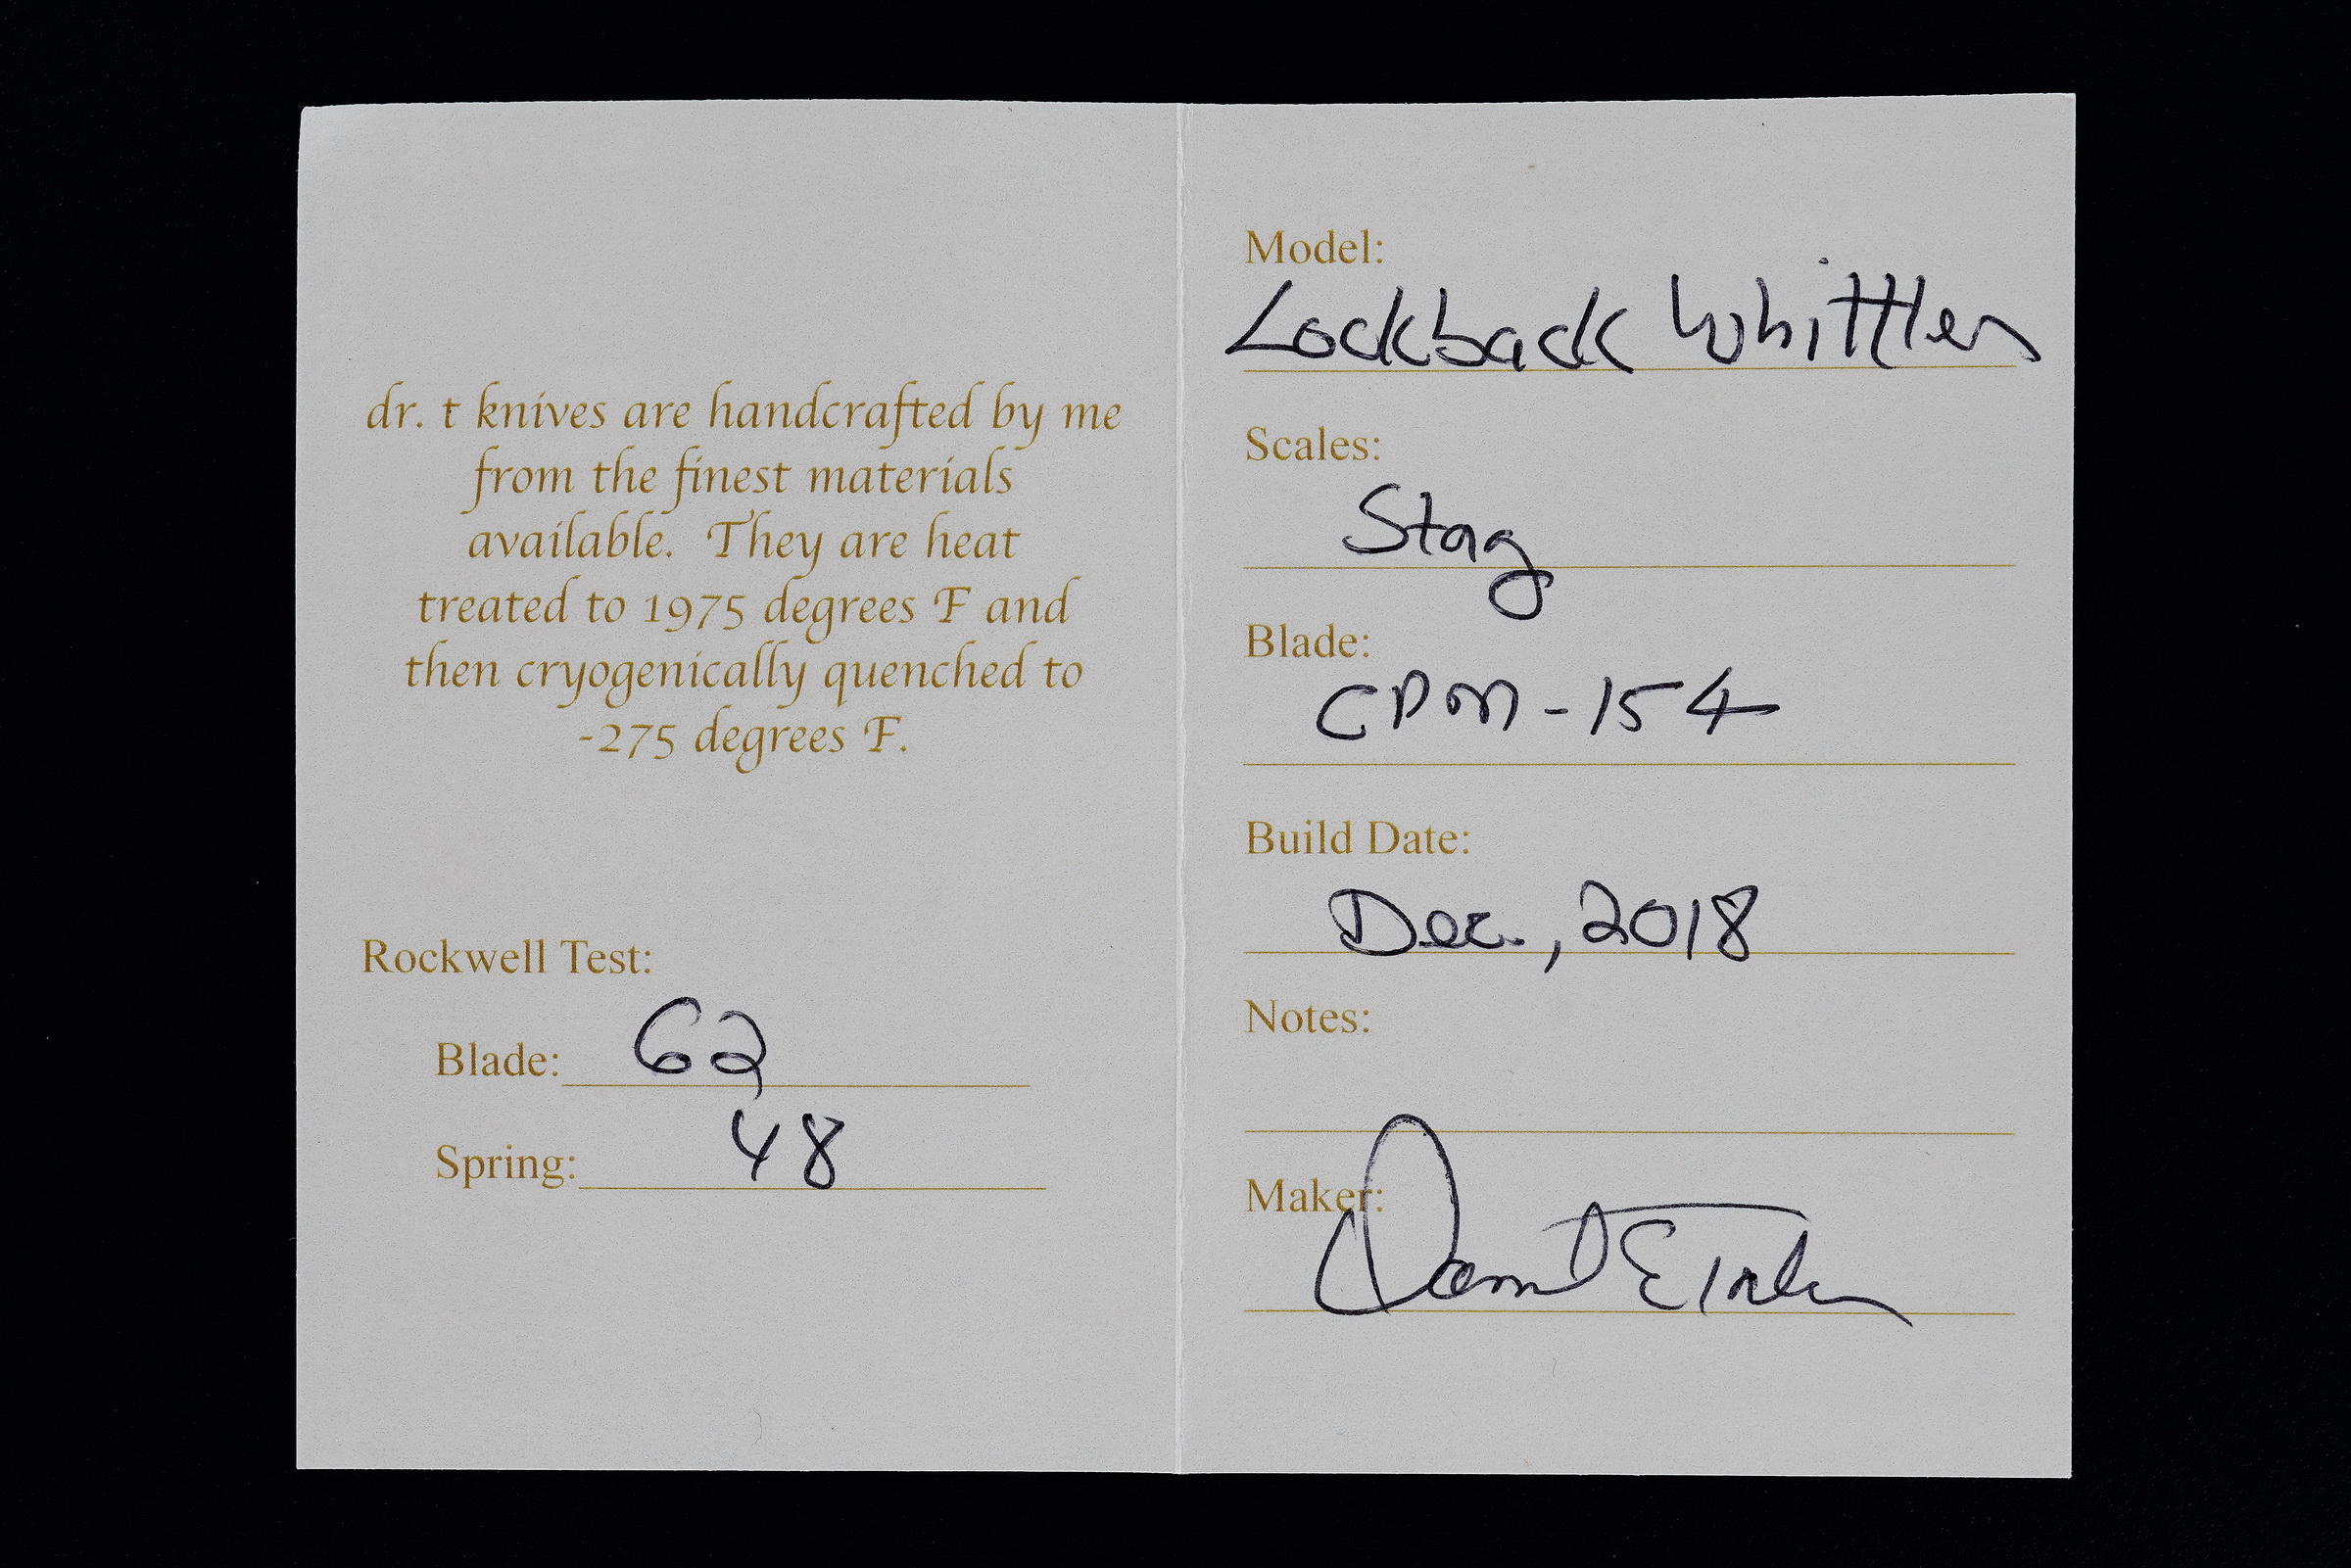 dr. t knives are handcrafted by me
from the finest materials
available. They are heat
treated to 1975 degrees F and
then cryogenically quenched to
-275 degrees F.
Rockwell Test:
Blade: 62
Spring: 48
Model:
Lockback Whittler
Scales:
Stag
Blade:
CPM-154
Build Date:
Dec., 2018
Notes:
Maker: